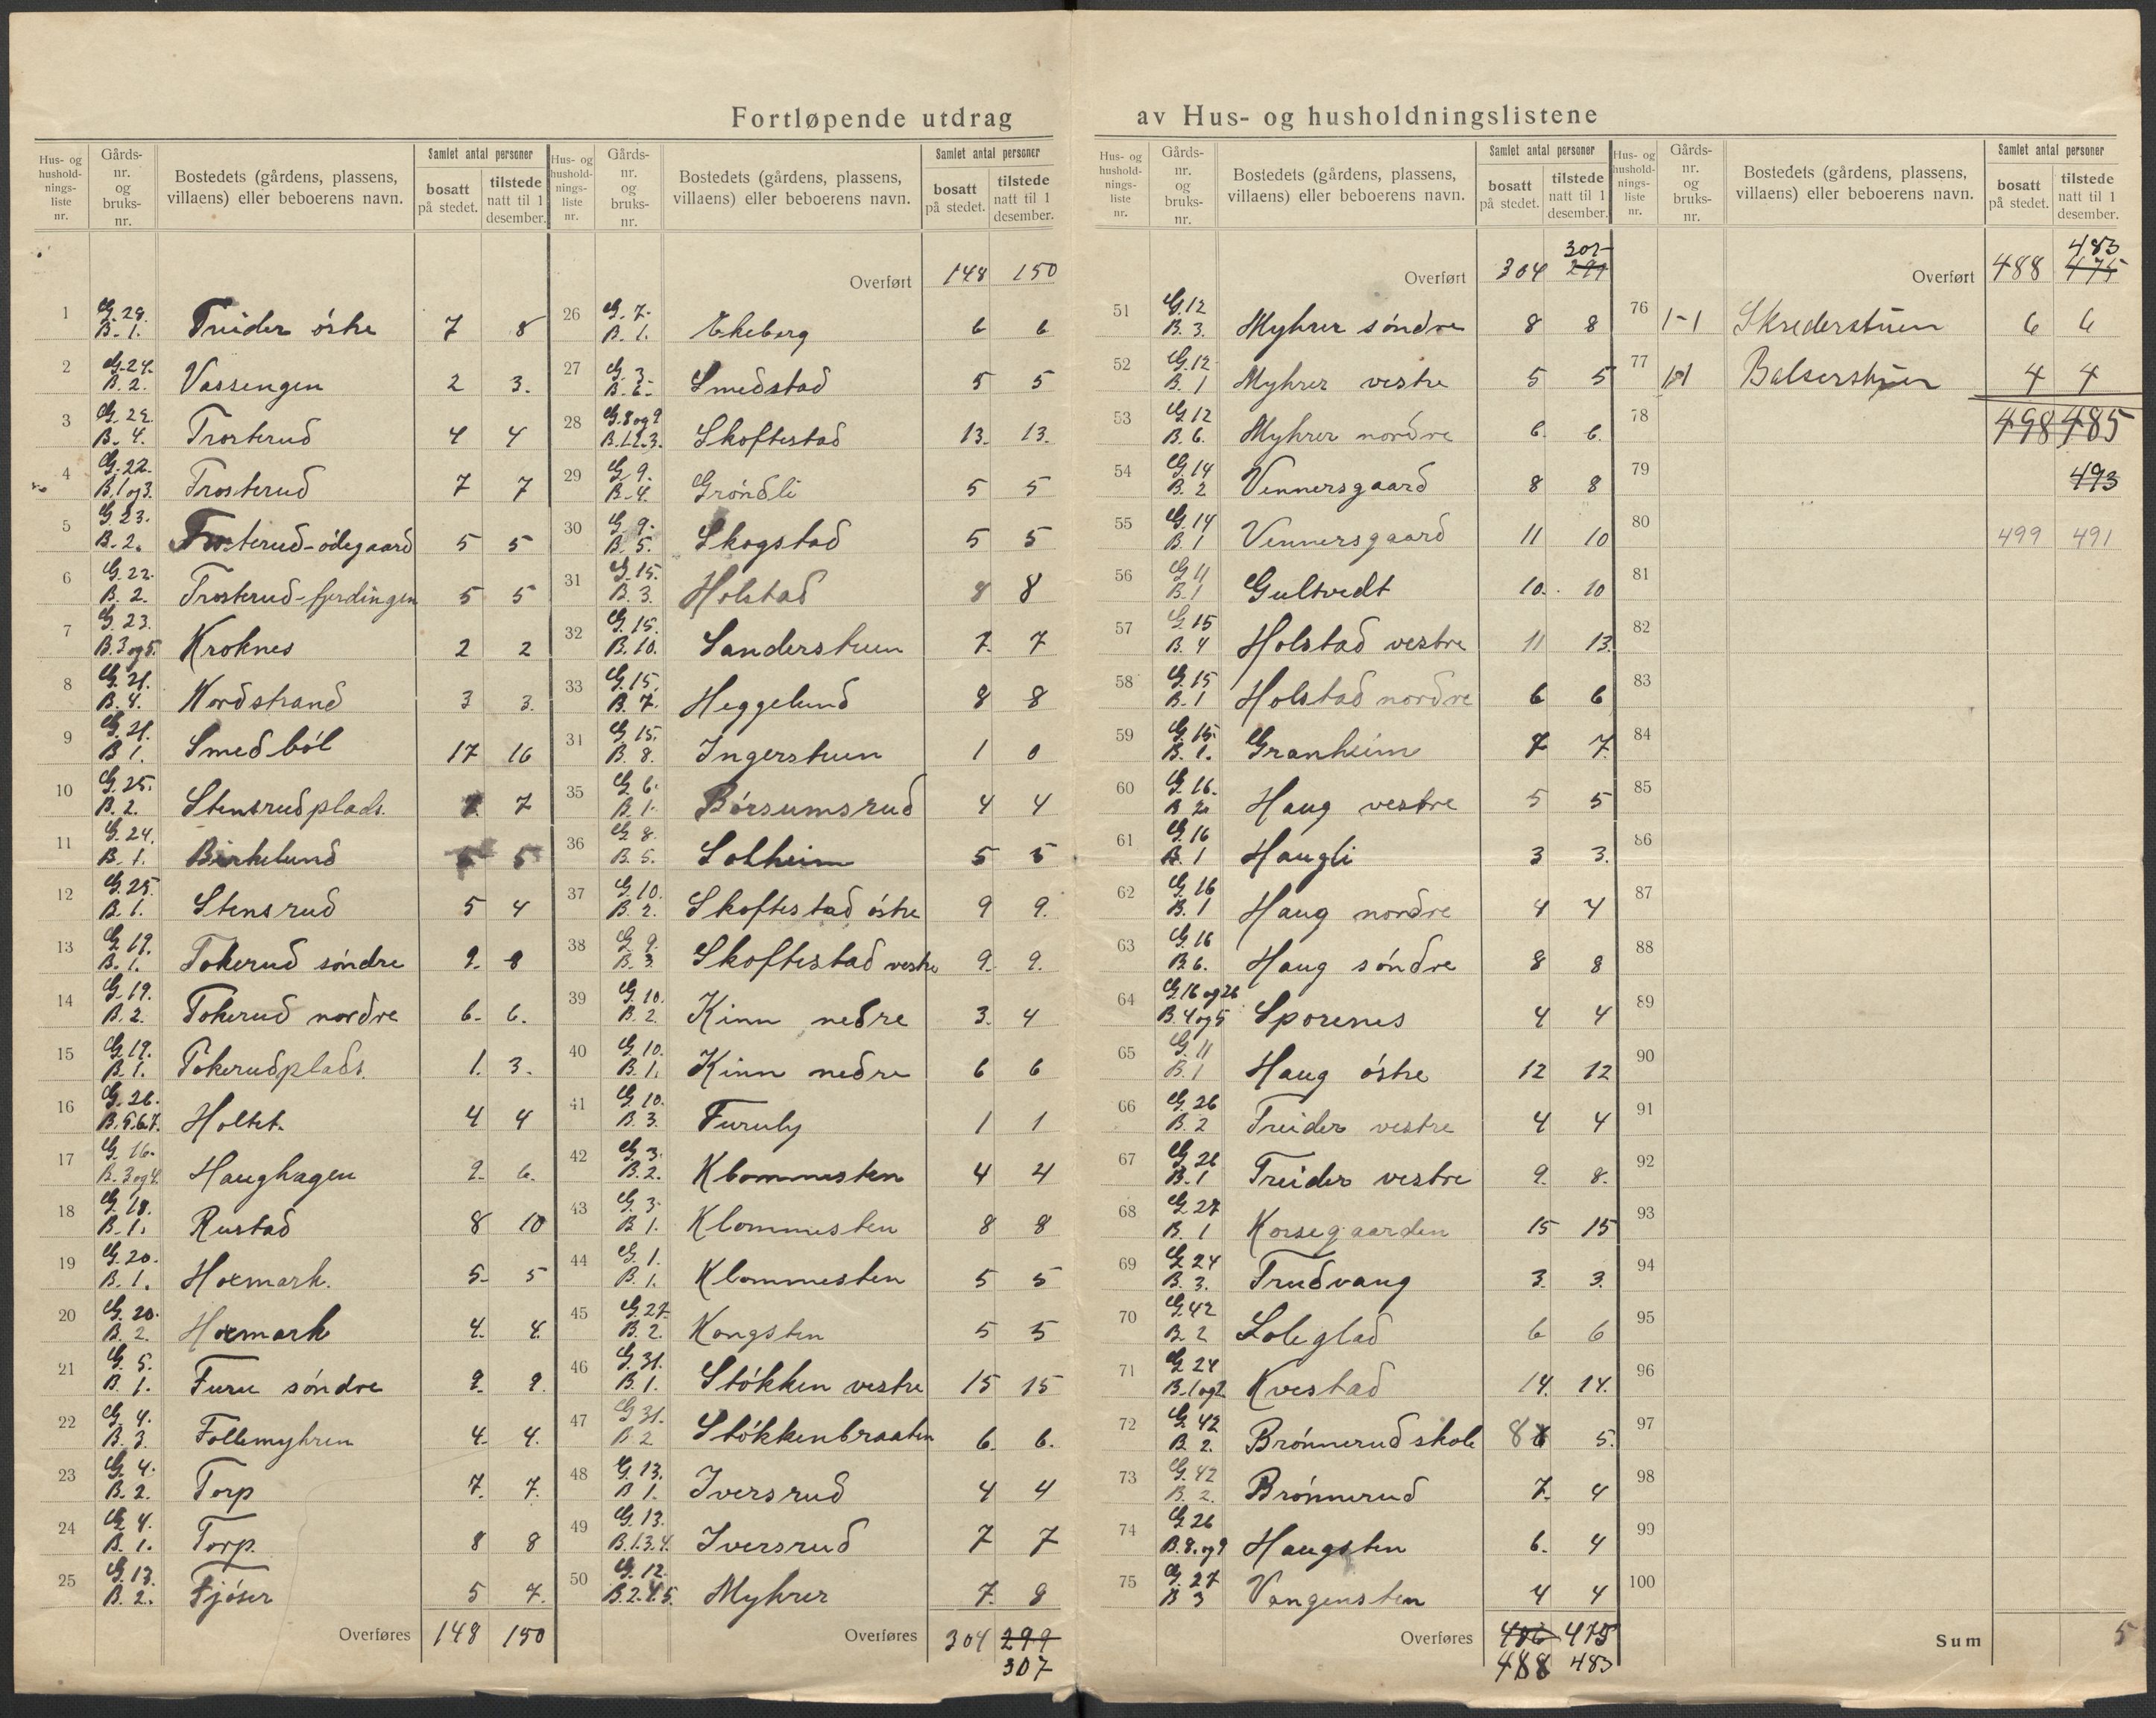 Fortløpende utdrag av Hus- og husholdningslistene
Hus- og hushold-nings-liste nr. | Gårds-nr. og bruks-nr. | Bostedets (gårdens, plassens, villaens) eller beboerens navn. | Samlet antal personer | bosatt på stedet. | tilstede natt til 1 desember.
1 G. 28. B. 1. Treider østre 7 8
2 G. 24. B. 2. Vassengen 2 3.
3 G. 22. B. 4. Trosterud 4 4
4 G. 22. B. 1 og 3. Trosterud 7 7
5 G. 23. B. 2. Trosterud-ødegaard 5 5
6 G. 22. B. 2. Trosterud-fjerdingen 5 5
7 G. 23. B. 3 og 5. Kroknes 2 2
8 G. 21. B. 4. Nordstrand 3 3.
9 G. 21. B 1. Smedbøl 17 16
10 G. 25. B. 2. Stensrudplads. 7
11 G. 24. B. 1. Birkelund 5
12 G. 25. B. 1. Stensrud 5 4
13 G. 19. B. 1. Tokerud søndre 9. 8
14 G. 19. B. 2. Tokerud nordre 6. 6.
15 G. 19. B. 1. Tokerudplads. 1. 3.
16 G. 26. B. 5.6.7. Holtet. 4 4
17 G. 16. B. 3 og 4. Haughagen 9. 6.
18 G. 18. B. 1. Rustad 8 10
19 G. 20. B. 1. Hoxmark. 5. 5
20 G. 20. B. 2. Hoxmark 4. 4.
21 G. 5. B. 1. Furu søndre 9. 9.
22 G. 4. B. 3. Follemyhren 4. 4.
23 G. 4. B. 2. Torp 7. 7.
24 G. 4. B. 1. Torp. 8 8
25 G. 13. B. 2. Fjøser 5 7.
Overføres 148 150
Hus- og hushold-nings-liste nr. | Gårds-nr. og bruks-nr. | Bostedets (gårdens, plassens, villaens) eller beboerens navn. | Samlet antal personer | bosatt på stedet. | tilstede natt til 1 desember.
Overført 148 150
26 G. 7. B. 1. Ekeberg 6 6
27 G. 3. B. 6. Smedstad 5 5
28 G. 8 og 9 B. 1.2.3. Skoftestad 13. 13.
29 G. 9. B. 4. Grøndli 5 5
30 G. 9. B. 5. Skogstad 5 5
31 G. 15. B. 3. Holstad 8 8
32 G. 15. B. 10. Sanderstuen 7. 7
33 G. 15. B. 7. Heggelund 8 8
31 G. 15. B. 8. Ingerstuen 1 0
35 G. 6. B. 1. Børsumsrud 4 4
36 G. 8. B. 5. Solheim 5 5
37 G. 10. B. 2. Skoftestad østre 9 9.
38 G. 9. B. 3. Skoftestad vestre 9. 9.
39 G. 10. B. 2. Kinn nedre 3. 4
40 G. 10. B. 1. Kinn nedre 6 6
41 G. 10. B. 3. Furuly 1 1
42 G. 3. B. 2. Klommesten 4 4
43 G. 3. B 1. Klommesten 8 8
44 G. 1. B. 1. Klommesten 5 5
45 G. 27. B. 2. Kongsten 5 5
46 G. 31. B. 1. Støkken vestre 15 15
47 G 31. B 2. Støkkenbraaten 6. 6.
48 G. 13. B 1. Iversrud 4 4
49 G. 13. B. 1.3.4. Iversrud 7 7
50 G. 12. B. 2.4.5. Myhrer 7. 8
Overføres 304 299
307
Hus- og hushold-nings-liste nr. | Gårds-nr. og bruks-nr. | Bostedets (gårdens, plassens, villaens) eller beboerens navn. | Samlet antal personer | bosatt på stedet. | tilstede natt til 1 desember.
307
Overført 304 299
51 G. 12 B. 3. Myhrer søndre 8 8
52 G. 12 B. 1 Myhrer vestre 5 5
53 G. 12 B. 6. Myhrer nordre 6. 6.
54 G. 14 B. 2 Vennersgaard 8 8
55 G. 14 B. 1 Vennersgaard 11 10
56 G 11 B. 1 Gultvedt 10. 10
57 G. 15 B. 4 Holstad vestre 11 13.
58 G. 15 B. 1 Holstad nordre 6 6
59 G. 15. B. 1. Granheim 7 7.
60 G. 16. B 2. Haug vestre 5 5
61 G. 16 B. 1 Haugli 3 3.
62 G. 16 B. 1 Haug nordre 4 4
63 G. 16 B. 6. Haug søndre 8 8
64 G. 16 og 26 B. 4 og 5 Sporenes 4 4
65 G. 11 B. 1 Haug østre 12 12
66 G. 26 B. 2 Treider vestre 4 4
67 G. 26 B. 1 Treider vestre 9. 8.
68 G. 27 B. 1 Korsegaarden 15 15
69 G. 24 B. 3. Trudvang 3. 3.
70 G. 42 B. 2 Soleglad 6 6
71 G. 24 B. 1 og 2 Kvestad 14. 14.
72 G. 42 B. 2. Brønnerud skole 8 5.
73 G. 42 B. 2. Brønnerud 7. 4
74 G. 26 B. 8. og 9 Haugsten 6. 4
75 G. 27 B 3 Vangensten 4 4
Overføres 475
488 483
Hus- og hushold-nings-liste nr. | Gårds-nr. og bruks-nr. | Bostedets (gårdens, plassens, villaens) eller beboerens navn. | Samlet antal personer | bosatt på stedet. | tilstede natt til 1 desember.
483
Overført 488 475
76 1-1 Skrederstuen 6 6
77 1-1 Balserstuen 4 4
78 498 485
79 493
80 499 491
81
82
83
84
85
86
87
88
89
90
91
92
93
94
95
96
97
98
99
100
Sum 5